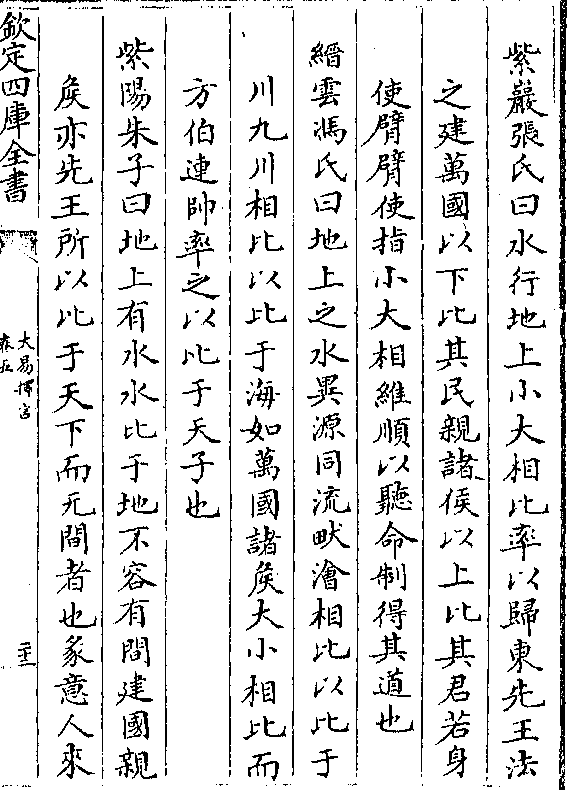 紫巖張氏曰水行地上小大相比率以歸東先王法
之建萬國以下比其民親諸侯以上比其君若身
使臂臂使指小大相維順以聽命制得其道也
縉雲馮氏曰地上之水異源同流畎澮相比以比于
川九川相比以比于海如萬國諸侯大小相比而
方伯連帥率之以比于天子也
紫陽朱子曰地上有水水比于地不容有間建國親
侯亦先王所以比于天下而无間者也彖意人來
欽定四庫全書
大易擇言
卷五
二十二